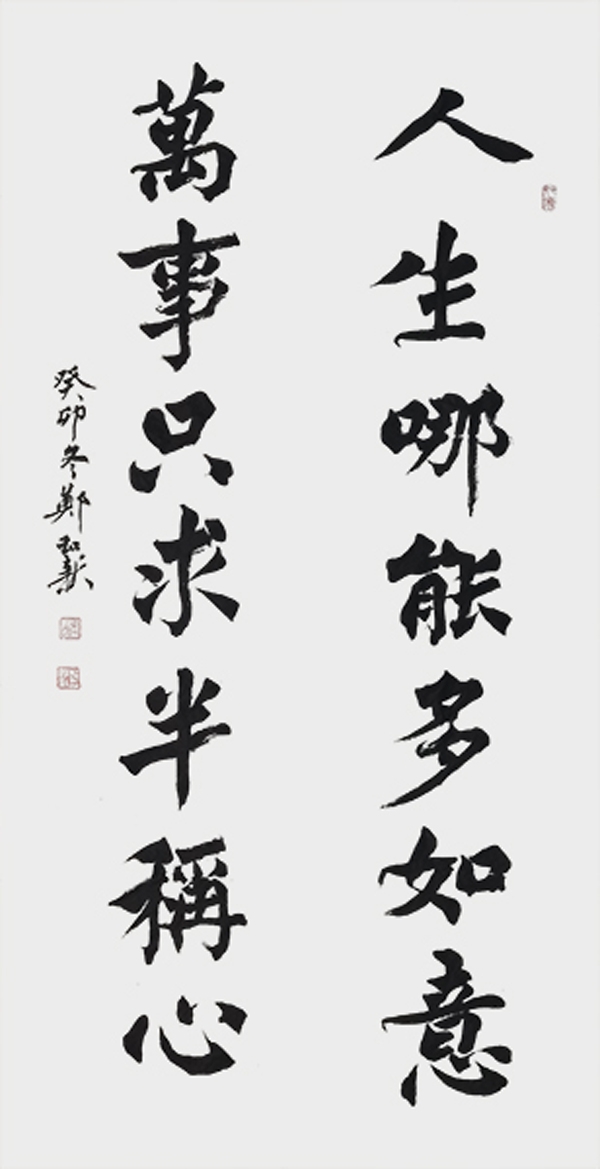 人生哪能多如意
萬事只求半稱心
癸卯冬鄭和新